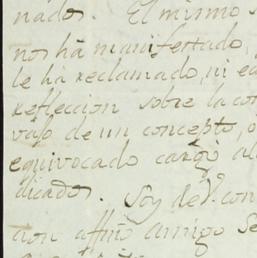 nados. El mismo
nos ha manifestado,
le ha reclamado, ni
refleccion sobre la con
vajo de un concepto, o
equivocado cargò al
dicados. Soy de V. con
cion affmo amigo Se